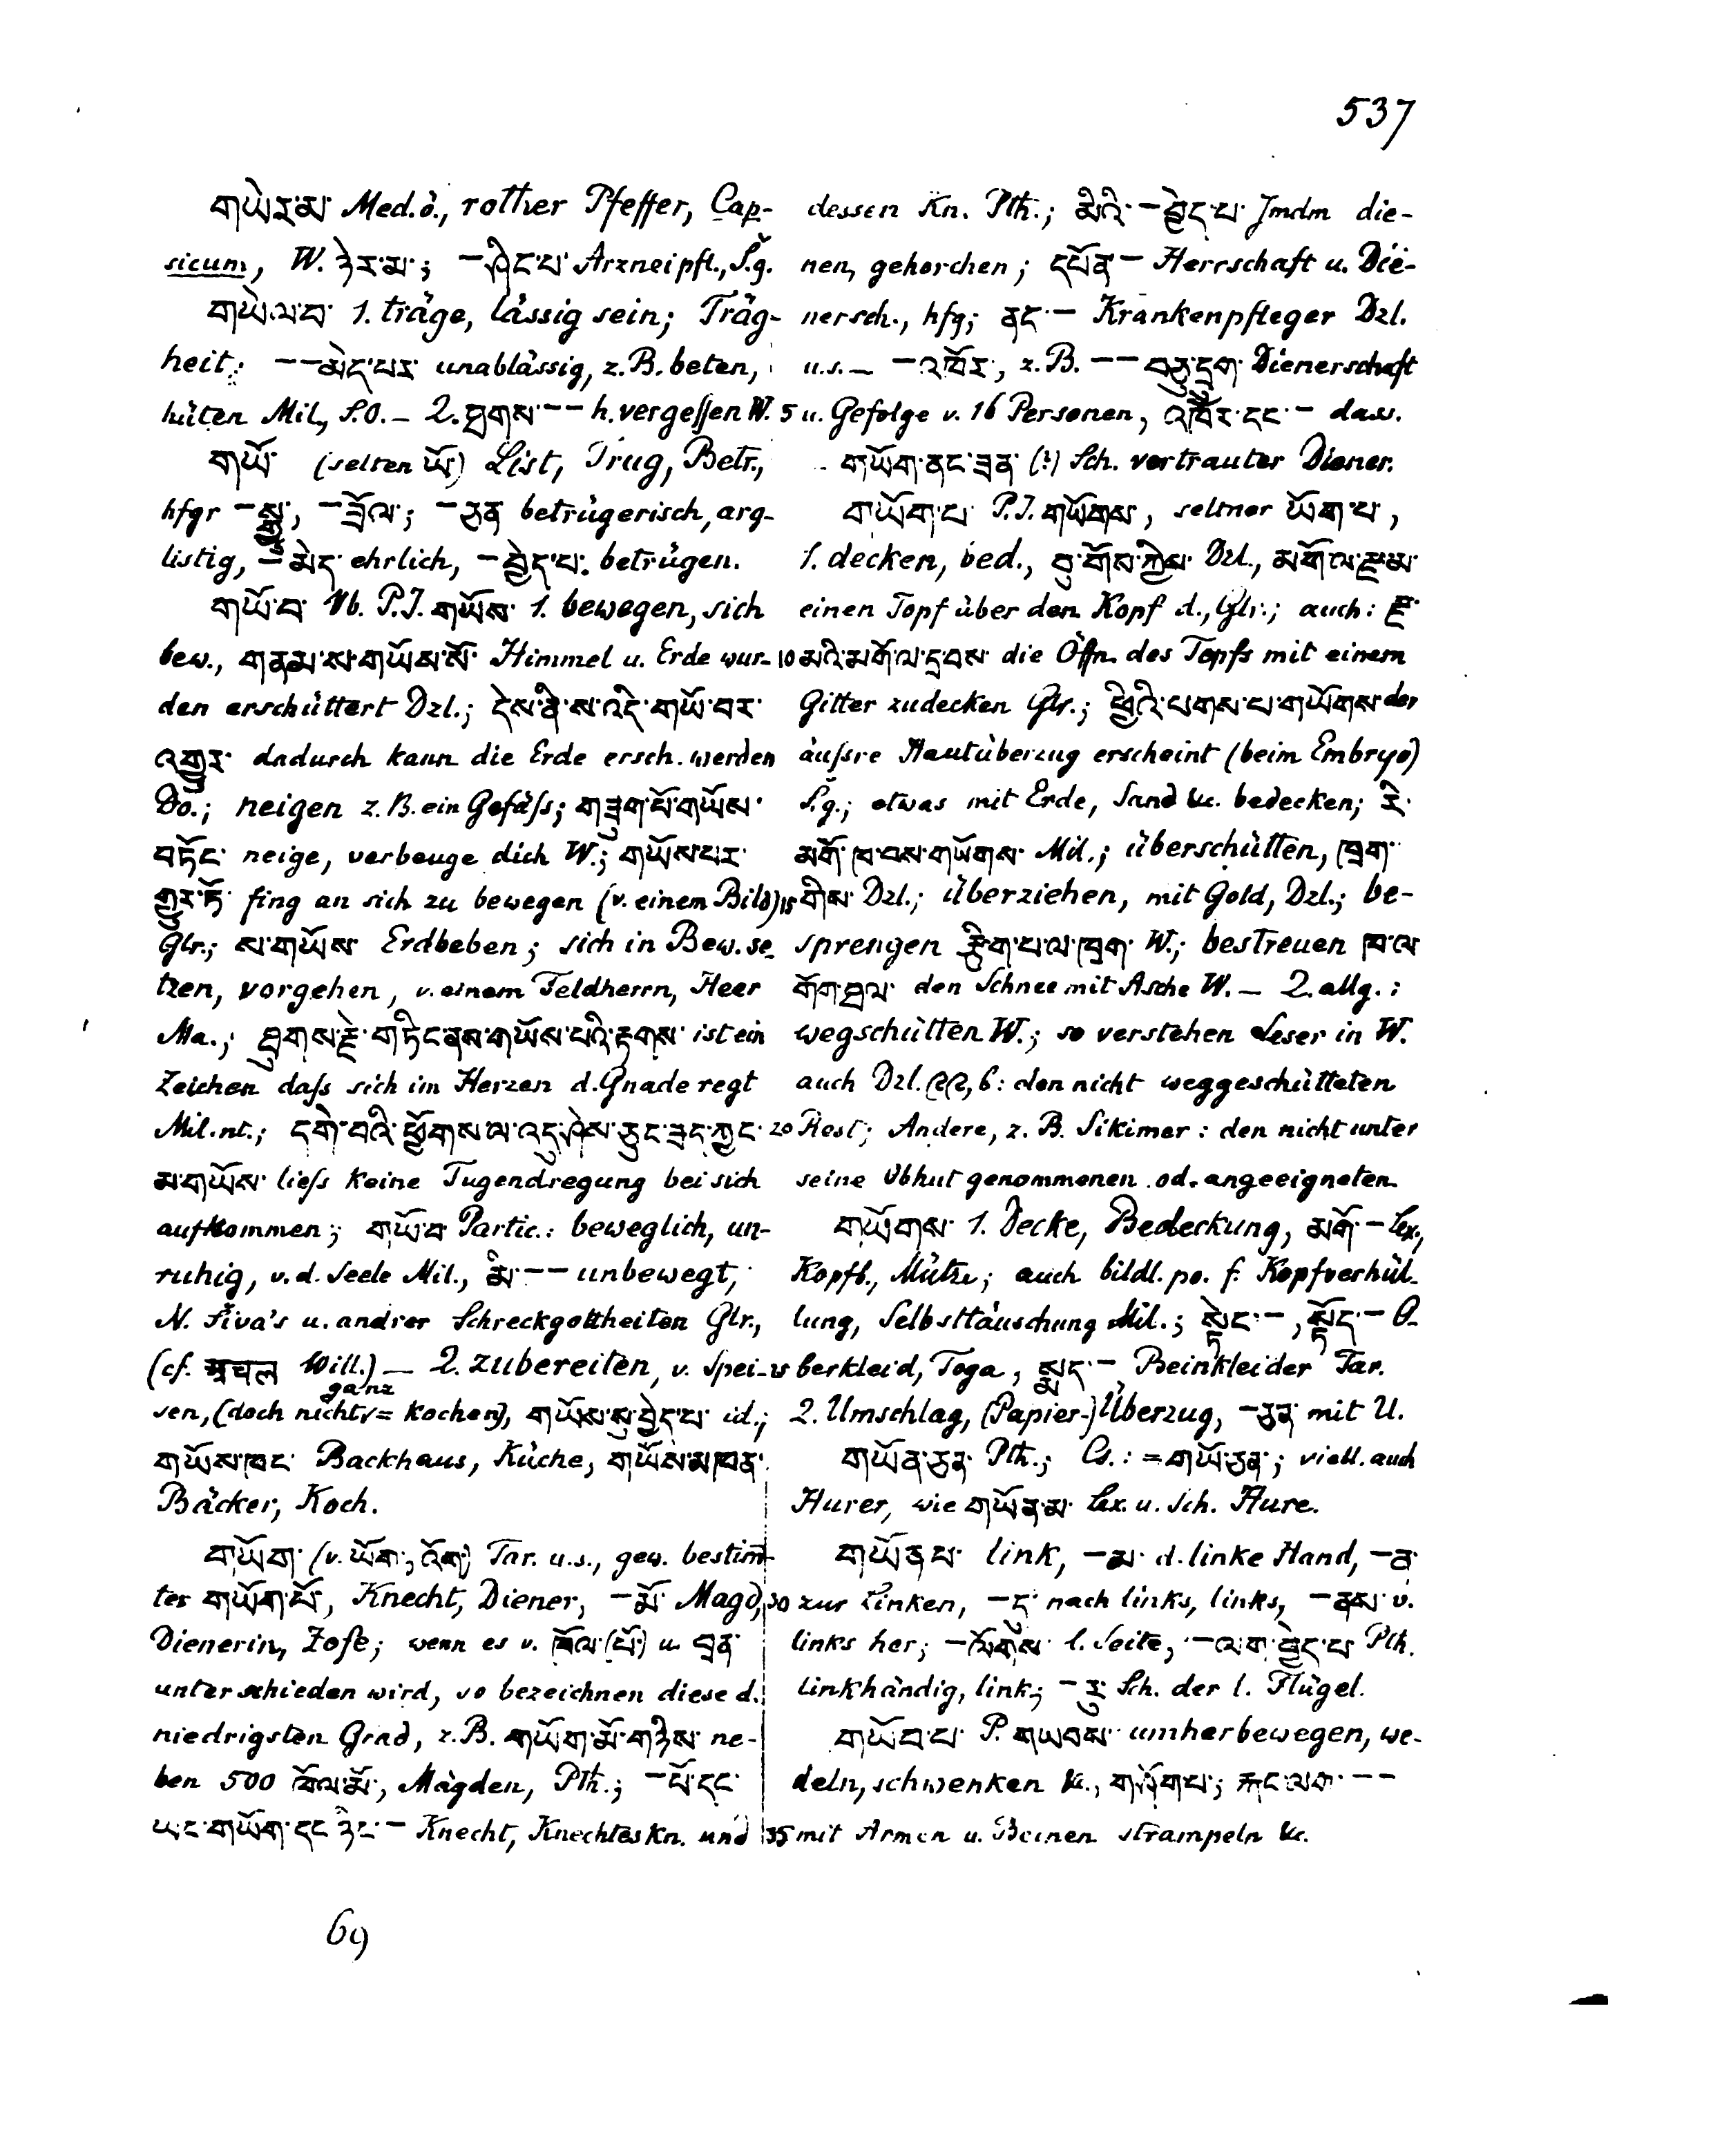 537
གཡེར་མ་ Med. ö., rother Pfeffer, Cap-
sicum, W. ཉེར་མ་; – ཤིང་པ་ Arzneipfl., S.g.
གཡེལ་བ་ 1. träge, lässig sein; Träg-
heit; – – མེད་པར་ unablässig, z. B. beten,
hüten Mil., S.O. – 2. ཐུགས་ – – h. vergessen W.
གཡོ་ (selten ཡོ་) List, Trug, Betr.,
hfgr – སྒྱུ་, – ཟོལ་; – ཅན་ betrügerisch, arg-
listig, – མེད་ ehrlich, – བྱེད་པ་ betrügen.
གཡོ་བ་ Vb. P.I. གཡོས་ 1. bewegen, sich
bew., གནམ་ས་གཡོས་སོ་ Himmel u. Erde wur-
den erschüttert Dzl.; དེས་ནི་ས་འདི་གཡོ་བར་
འགྱུར་ dadurch kann die Erde ersch. werden
Do.; neigen z. B. ein Gefäſs; གཟུག་པོ་གཡོས་
བཏོང་ neige, verbeuge dich W.; གཡོས་པར་
གྱུར་ཏོ་ fing an sich zu bewegen (v. einem Bild)
Glr.; ས་གཡོས་ Erdbeben; sich in Bew. se-
tzen, vorgehen, v. einem Feldherrn, Heer
Ma.; ཐུགས་རྗེ་གཏིང་ནས་གཡོས་པའི་རྟགས་ ist ein
Zeichen daſs sich im Herzen d. Gnade regt
Mil. nt.; དགེ་བའི་ཕྱོགས་ལ་འདུ་ཤེས་ཅུང་ཟད་ཀྱང་
མ་གཡོས་ lieſs keine Tugendregung bei sich
aufkommen; གཡོ་བ་ Partic.: beweglich, un-
ruhig, v. d. Seele Mil., མི་ – – unbewegt,
N. Siva's u. andrer Schreckgottheiten Glr.,
(cf. Will.) – 2. zubereiten, v. Spei-
sen, (doch nicht ganz = kochen), གཡོས་སུ་བྱེད་པ་ id.;
གཡོས་ཁང་ Backhaus, Küche, གཡོས་མཁན་
Bäcker, Koch.
གཡོག་ (v. ཡོག་, འོག་) Tar. u. s., gew. bestim̄-
ter གཡོག་པོ་, Knecht, Diener, – མོ་ Magd,
Dienerin, Zofe; wenn es v. ཁོལ་(པོ་) u. བྲན་
unterschieden wird, so bezeichnen diese d.
niedrigsten Grad, z. B. གཡོག་མོ་གཉིས་ ne-
ben 500 ཁོལ་མོ་, Mägden, Pth.; – པོ་དང་
ཡང་གཡོག་དང་ཉིང་ – Knecht, Knechtes Kn. und
dessen Kn. Pth.; མིའི་ – བྱེད་པ་ Jmdm die-
nen, gehorchen; དཔོན་ – Herrschaft u. Die-
nersch., hfg; ནད་ – Krankenpfleger Dzl.
u. s. – – འཁོར་, z. B. – – བཅུ་དྲུག་ Dienerschaft
5 u. Gefolge v. 16 Personen, འཁོར་དང་ – dass.
གཡོག་ནང་ཟན་ (?) Sch. vertrauter Diener.
གཡོག་པ་ P.I. གཡོགས་, seltner ཡོག་པ་,
1. decken, bed., བུ་གོས་ཀྱིས་ Dzl., མགོ་ལ་རྫ་མ་
einen Topf über den Kopf d., Glr.; auch: རྫ་
10 མའི་མགོ་ལ་དྲ་བས་ die Öffn. des Topfs mit einem
Gitter zudecken Glr.; ཕྱིའི་པགས་པ་གཡོགས་ der
äuſsre Hautüberzug erscheint (beim Embryo)
S.g.; etwas mit Erde, Sand &c. bedecken; རི་
མགོ་ཁ་བས་གཡོགས་ Mil.; überschütten, ཁྲག་
15 གིས་ Dzl.; überziehen, mit Gold, Dzl.; be-
sprengen རྩིག་པ་ལ་ཁྲག་ W.; bestreuen ཁ་ལ་
གོག་ཐལ་ den Schnee mit Asche W. – 2. allg.:
wegschütten W.; so verstehen Leser in W.
auch Dzl. ༢༢, 6: den nicht weggeschütteten
20 Rest; Andere, z. B. Sikimer: den nicht unter
seine Obhut genommenen od. angeeigneten
གཡོགས་ 1. Decke, Bedeckung, མགོ་ – Lex.,
Kopfb., Mütze; auch bildl. po. f. Kopfverhül-
lung, Selbsttäuschung Mil.; སྟེང་ –, སྟོད་ – O-
25 berkleid, Toga, སྨད་ – Beinkleider Tar.
2. Umschlag, (Papier-) Überzug, – ཅན་ mit U.
གཡོན་ཅན་ Pth.; Cs.: = གཡོ་ཅན་; viell. auch
Hurer, wie གཡོན་མ་ Lex. u. Sch. Hure.
གཡོན་པ་ link, – མ་ d. linke Hand, – ན་
30 zur Linken, – དུ་ nach links, links, – ནས་ v.
links her; – ལོགས་ l. Seite, – ལག་བྱེད་པ་ Pth.
linkhändig, link; – རུ་ Sch. der l. Flügel.
གཡོབ་པ་ P. གཡབས་ umherbewegen, we-
deln, schwenken &c., གཤོག་པ་; རྐང་ལག་ – –
35 mit Armen u. Beinen strampeln &c.
69